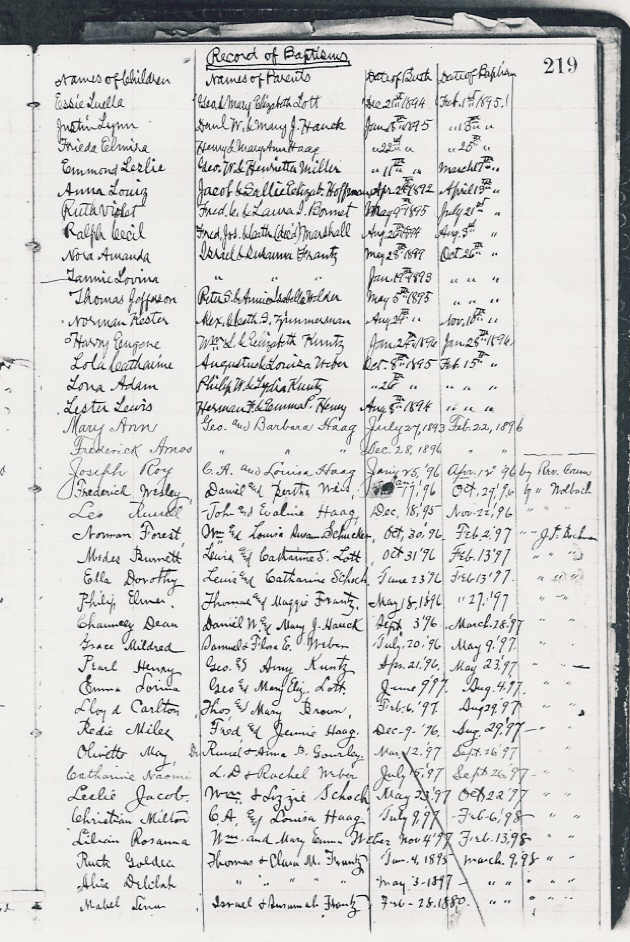 Record of Baptisms
219
Names of Children Names of Parents Date of Birth Date of Baptism
Essie Luella Geo. & Mary Elizabeth Lott Dec. 21st 1894 Feb. 1st 1895
Justin Lynn Danl W. & Mary J. Hauck Jan. 1895 " "
Frieda Elmira Henry & Mary Ann Haag " 22nd " " 25th "
Emmond Leslie Geo. W. & Henrietta Miller " 11th " March 17th "
Anna Louiz Jacob & Sallie Hoffman Apr. 1892 April "
Ruth Violet Fred. & Laura I. Bonnet May 9th 1895 July 21st "
Ralph Cecil Fred. Jos. & Cath (dec'd) Marshall Aug. Aug. 3rd "
Nora Amanda Israel & Susanna Frantz May 28th Oct. 26th "
Lovina " " " Jan. 1893 " " "
Thomas Jefferson Peter S. & Annie Isabella May 5th 1895 " " "
Norman Kester Alex. & Cath. S. Zimmerman Aug. " Nov. 10th "
Harry Eugene Wm. L. & Elizabeth Kuntz Jan. 24th 1896 Jan. 28th 1896
Lola Catharine Augustus & Louisa Weber Oct. 8th 1895 Feb. 15th "
Lona Adam Philip W. & Lydia Kuntz " 26th " " " "
Lester Lewis Herman F. & Emma P. Henry Aug. 8th 1894 " " "
Mary Ann Geo. and Barbara Haag July 27, 1893 Feb. 22, 1896
Frederick Amos " " Dec. 28, 1896
Joseph Roy C. A. and Louisa Haag 15, '96 Apr. 12 '96 by Rev.
Frederick Wesley Daniel & Bertha 17, '96 Oct. 29, '96 by " Wolbach
Leo Russel John & Evaline Haag Dec. 18, '95 Nov. 22, '96 " "
Norman Forest Wm & Louisa Susan Schucker Oct. 30, '96 Feb. 2, '97 " J. P.
Burnett Lewis & Catharine S. Lott Oct 31 '96 Feb. 13 '97 " "
Ella Dorothy Lewis & Catharine Schoch June 23 '96 Feb 13 '97 " "
Philip Elmer Thomas & Maggie Frantz May 18, 1896 " 27, '97 " "
Chauncey Dean Daniel W. & Mary J. Hauck Sept 3 '96 March 28 '97 " "
Grace Mildred Samuel & Flora E. Weber July 20, '96 May 9, '97 " "
Pearl Henry Geo. & Amy Kuntz Apr. 21, '96 May 23, '97 " "
Emma Lovina Geo & Mary Eliz. Lott June 9 '97 Aug. 4, '97 " "
Lloyd Carlton Thos & Mary Brown Feb. 6, '97 Aug 29, '97 " "
Miles Fred & Jennie Haag Dec. 9 - '96 Aug. 29, '97 " "
Olivette May & Anna B. Gourley Mar. 12, '97 Sept. 26 '97 " "
Catharine Naomi L. D. & Rachel Weber July 15, '97 Sept 26, '97 " "
Leslie Jacob Wm & Lizzie Schoch May 23, '97 Oct 22 '97 " "
Christian Milton C. A. & Louisa Haag July 9, '97 Feb. 6, '98 " "
Lilian Rosanna Wm. and Mary Emma Weber Nov 4 '97 Feb. 13, 98 " "
Ruth Goldie Thomas & Clara M. Frantz Jan. 4, 1895 March 9, 98 " "
Alice Delilah " " " " May 3 - 1897 " " " "
Mabel Israel & Susannah Frantz Feb - 28, 1880 " " " "